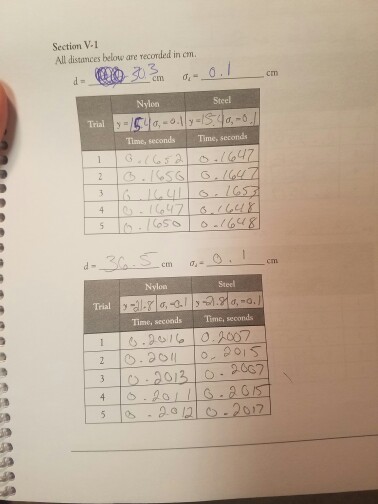 Section V-1
All distances below are recorded in cm.
d = 30.3 cm σ = 0.1 cm
Nylon Steel
Trial y = 15.4 σ = 0.1 y = 15.4 σ = 0.1
Time, seconds Time, seconds
1 0.1652 0.1647
2 0.1650 0.1647
3 0.1641 0.1653
4 0.1647 0.1648
5 0.1650 0.1648
d = 36.5 cm σ = 0.1 cm
Nylon Steel
Trial y = 21.8 σ = 0.1 y = 21.8 σ = 0.1
Time, seconds Time, seconds
1 0.2016 0.2007
2 0.2011 0.2015
3 0.2013 0.2007
4 0.2011 0.2015
5 0.2012 0.2017